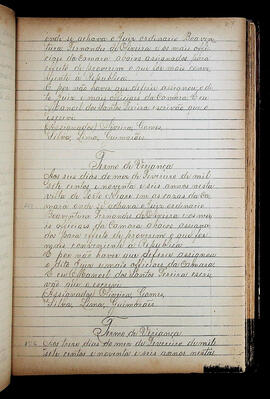 onde se achava o Juiz ordinario Boaven
tura Fernandes de Oliveira e os mais offi
ciaes da Camara abaixo assignados para
effeito de proverem o que for mais conve
niente á Republica.
E por não haver que deferir assignou o di
to Juiz e mais officiaes da Camara. E eu
Manoel dos Santos Pereira escrivão que o
escrevi
(Assignados) Oliveira, Gomes,
Silva, Lima, Guimarães.
Termo de Veriança
Aos seis dias do mez de Fevereiro de mil
sete centos e noventa e seis annos nesta
villa de
mara onde se achava o Juiz ordinario
Boaventura Fernandes de Oliveira e os ma
is officiaes da Camara abaixo assigna
dos para effeito de proverem o que for
mais conveniente á Republica
E por não haver que deferir assignou
o dito Juiz e mais officiaes da Camara.
E eu Manoel dos Santos Pereira escri
vão que o escrevi
(Assignados) Oliveira, Gomes,
Silva, Lima, Guimarães
Termo de Veriança
Aos treze dias do mez de Fevereiro de mil
sete centos e noventa e seis annos nesta